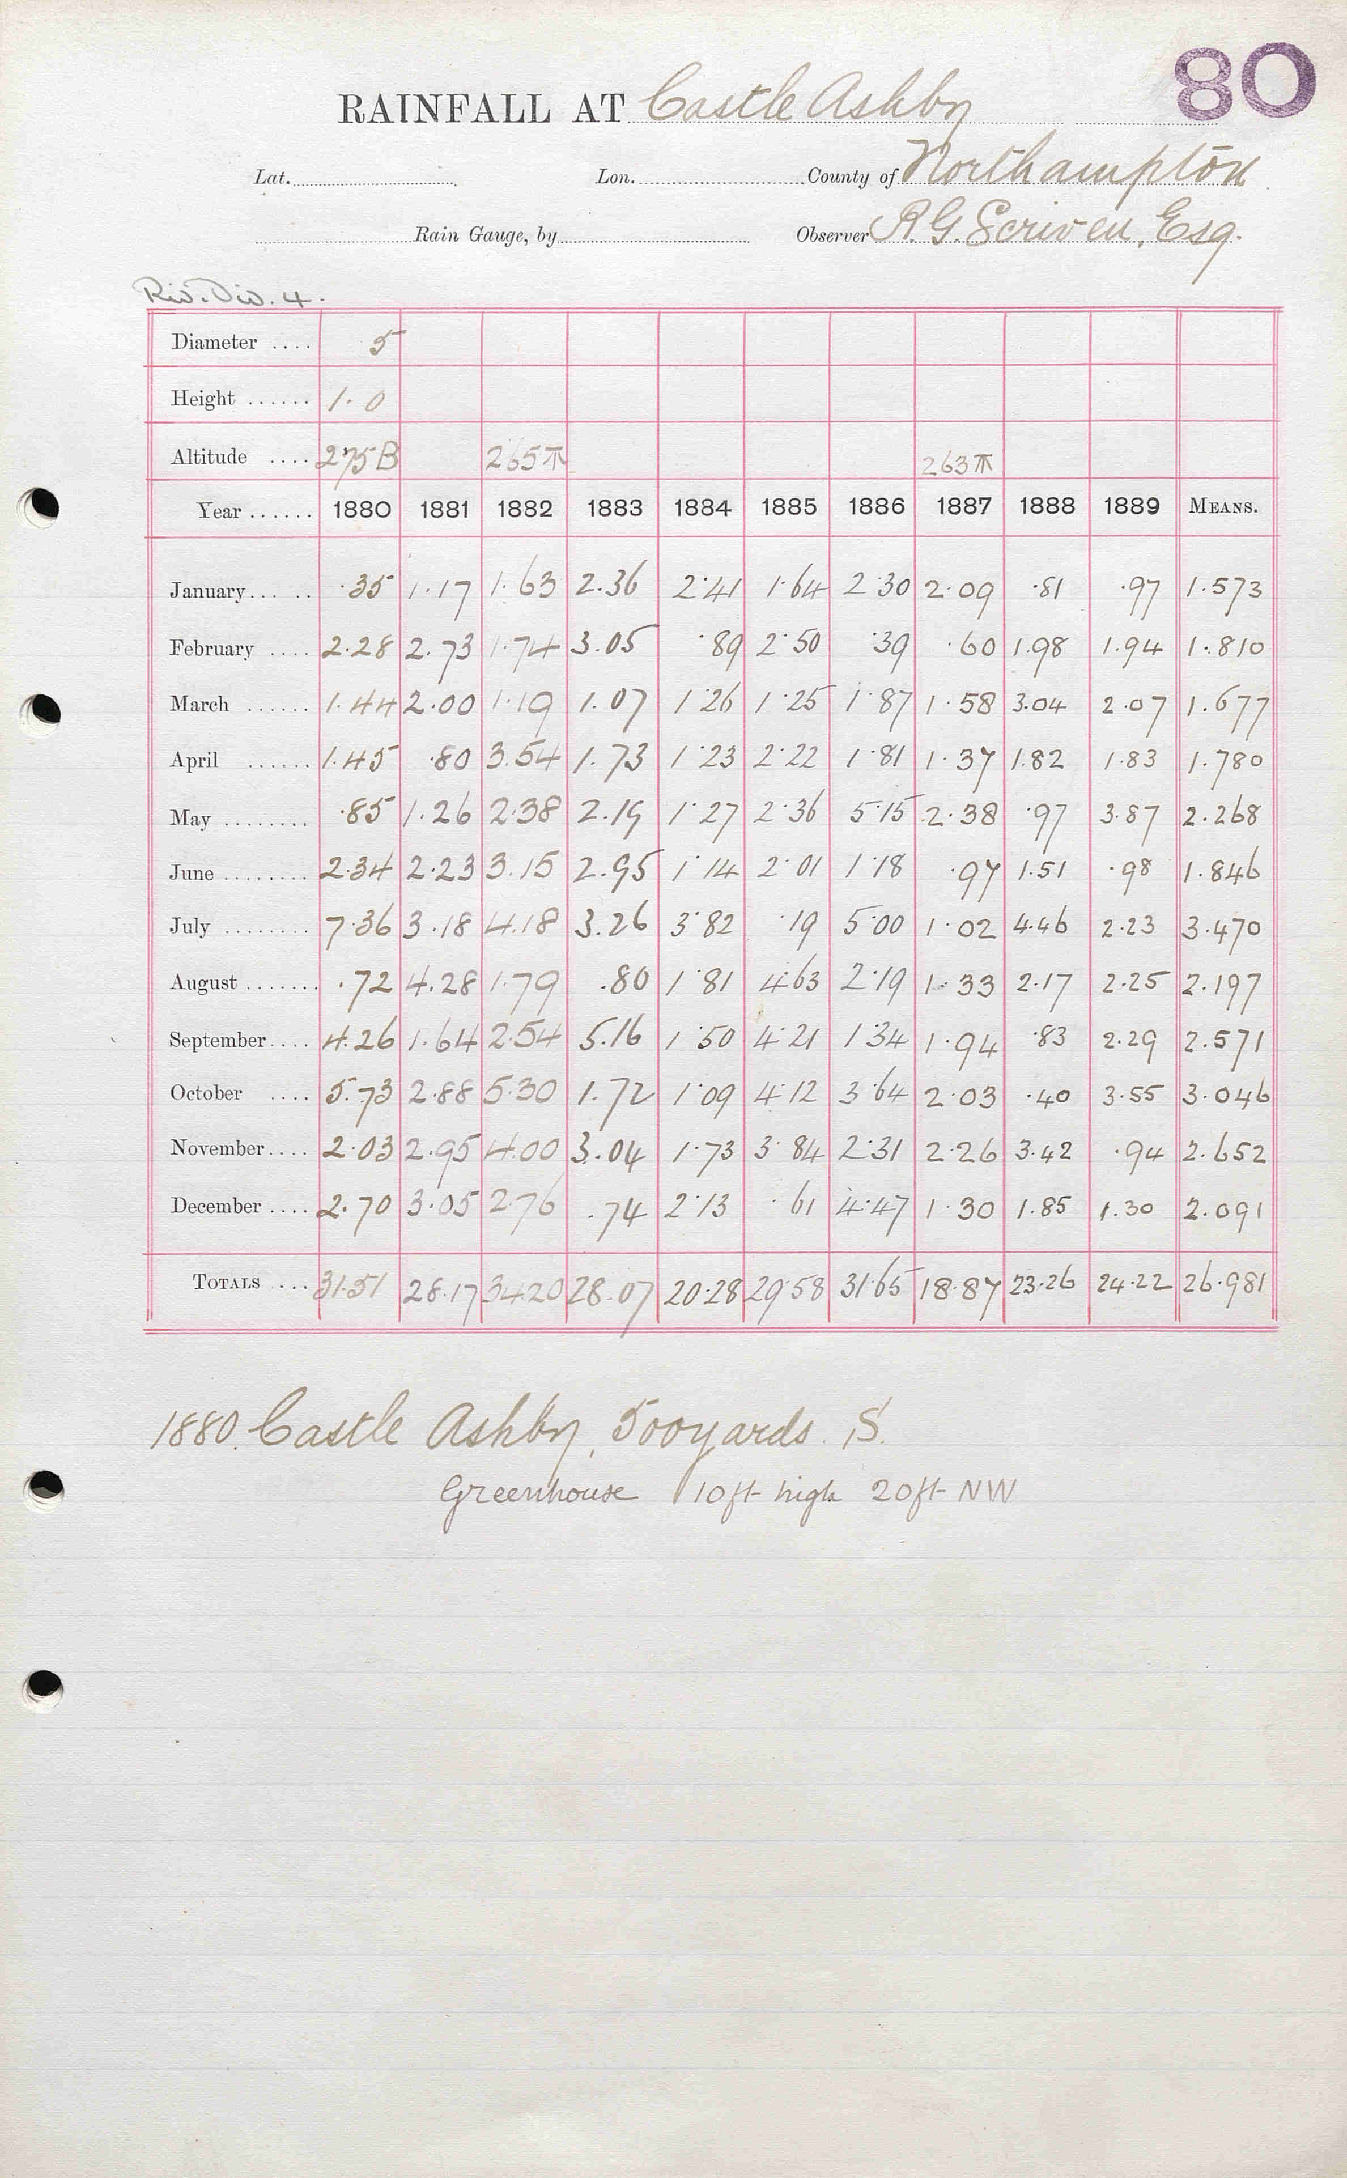 80
RAINFALL AT Castle Ashby
Lat. Lon. County of Northampton
Rain Gauge, by Observer R.G. Scriven, Esq.
Riv. Div. 4.
Diameter .... 5
Height ...... 1.0
Altitude .... 275B 265 263
Year ...... 1880 1881 1882 1883 1884 1885 1886 1887 1888 1889 MEANS.
January ..... .35 1.17 1.63 2.36 2.41 1.64 2.30 2.09 .81 .97 1.573
February .... 2.28 2.73 1.74 3.05 .89 2.50 .39 .60 1.98 1.94 1.810
March ...... 1.44 2.00 1.19 1.07 1.26 1.25 1.87 1.58 3.04 2.07 1.677
April ...... 1.45 .80 3.54 1.73 1.23 2.22 1.81 1.37 1.82 1.83 1.780
May ........ .85 1.26 2.38 2.19 1.27 2.36 5.15 2.38 .97 3.87 2.268
June ........ 2.34 2.23 3.15 2.95 1.14 2.01 1.18 .97 1.51 .98 1.846
July ........ 7.36 3.18 4.18 3.26 3.82 .19 5.00 1.02 4.46 2.23 3.470
August ....... .72 4.28 1.79 .80 1.81 4.63 2.19 1.33 2.17 2.25 2.197
September .... 4.26 1.64 2.54 5.16 1.50 4.21 1.34 1.94 .83 2.29 2.571
October .... 5.73 2.88 5.30 1.72 1.09 4.12 3.64 2.03 .40 3.55 3.046
November .... 2.03 2.95 4.00 3.04 1.73 3.84 2.31 2.26 3.42 .94 2.652
December .... 2.70 3.05 2.76 .74 2.13 .61 4.47 1.30 1.85 1.30 2.091
TOTALS ... 31.51 28.17 34.20 28.07 20.28 29.58 31.65 18.87 23.26 24.22 26.981
1880. Castle Ashby, 500 yards S.
Greenhouse 10ft high 20ft NW